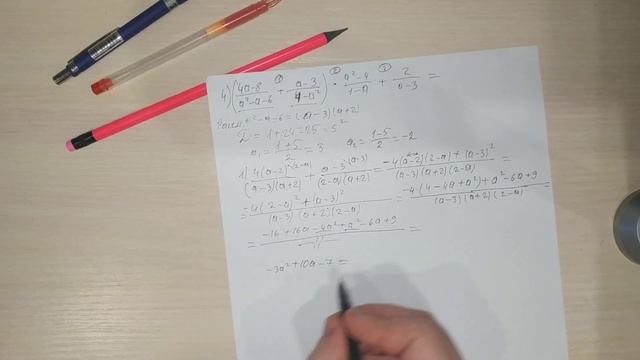 4) ((4a-8)/(a²-a-6) ① + (a-3)/(4-a²)) ② · (a²-4)/(1-a) ③ + 2/(a-3) =
a²-a-6=(a-3)(a+2)
D=1+24=25=5²
a₁=(1+5)/2=3 a₂=(1-5)/2=-2
1) 4(a-2)/((a-3)(a+2)) + (a-3)/((2-a)(a+2)) = (-4(a-2)(2-a)+(a-3)²)/((a-3)(a+2)(2-a)) =
= (-4(2-a)²+(a-3)²)/((a-3)(a+2)(2-a)) = (-4(4-4a+a²)+a²-6a+9)/((a-3)(a+2)(2-a)) =
= (-16+16a-4a²+a²-6a+9)/(11) =
-3a²+10a-7=